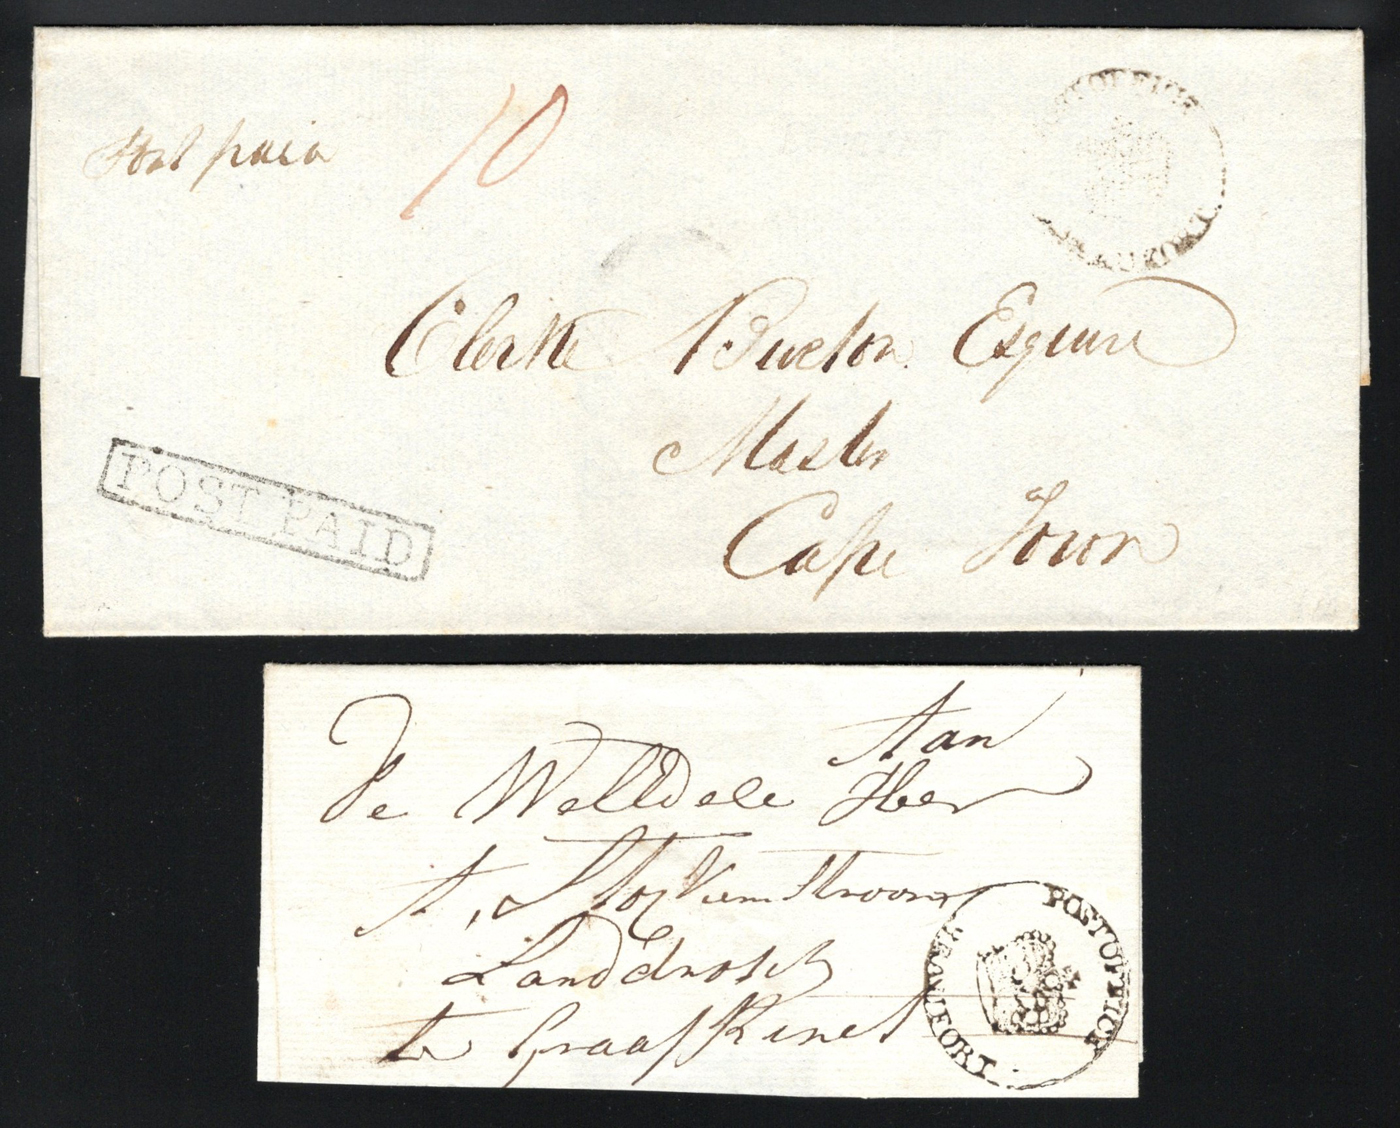 Post paid
10
POST OFFICE
BEAUFORT
Clerke Burton Esquire
Master
Cape Town
POST PAID
Aan
De WelEdele Heer
A, Stockenstroom
Landdrost
te Graaff Rinet
POST OFFICE
BEAUFORT